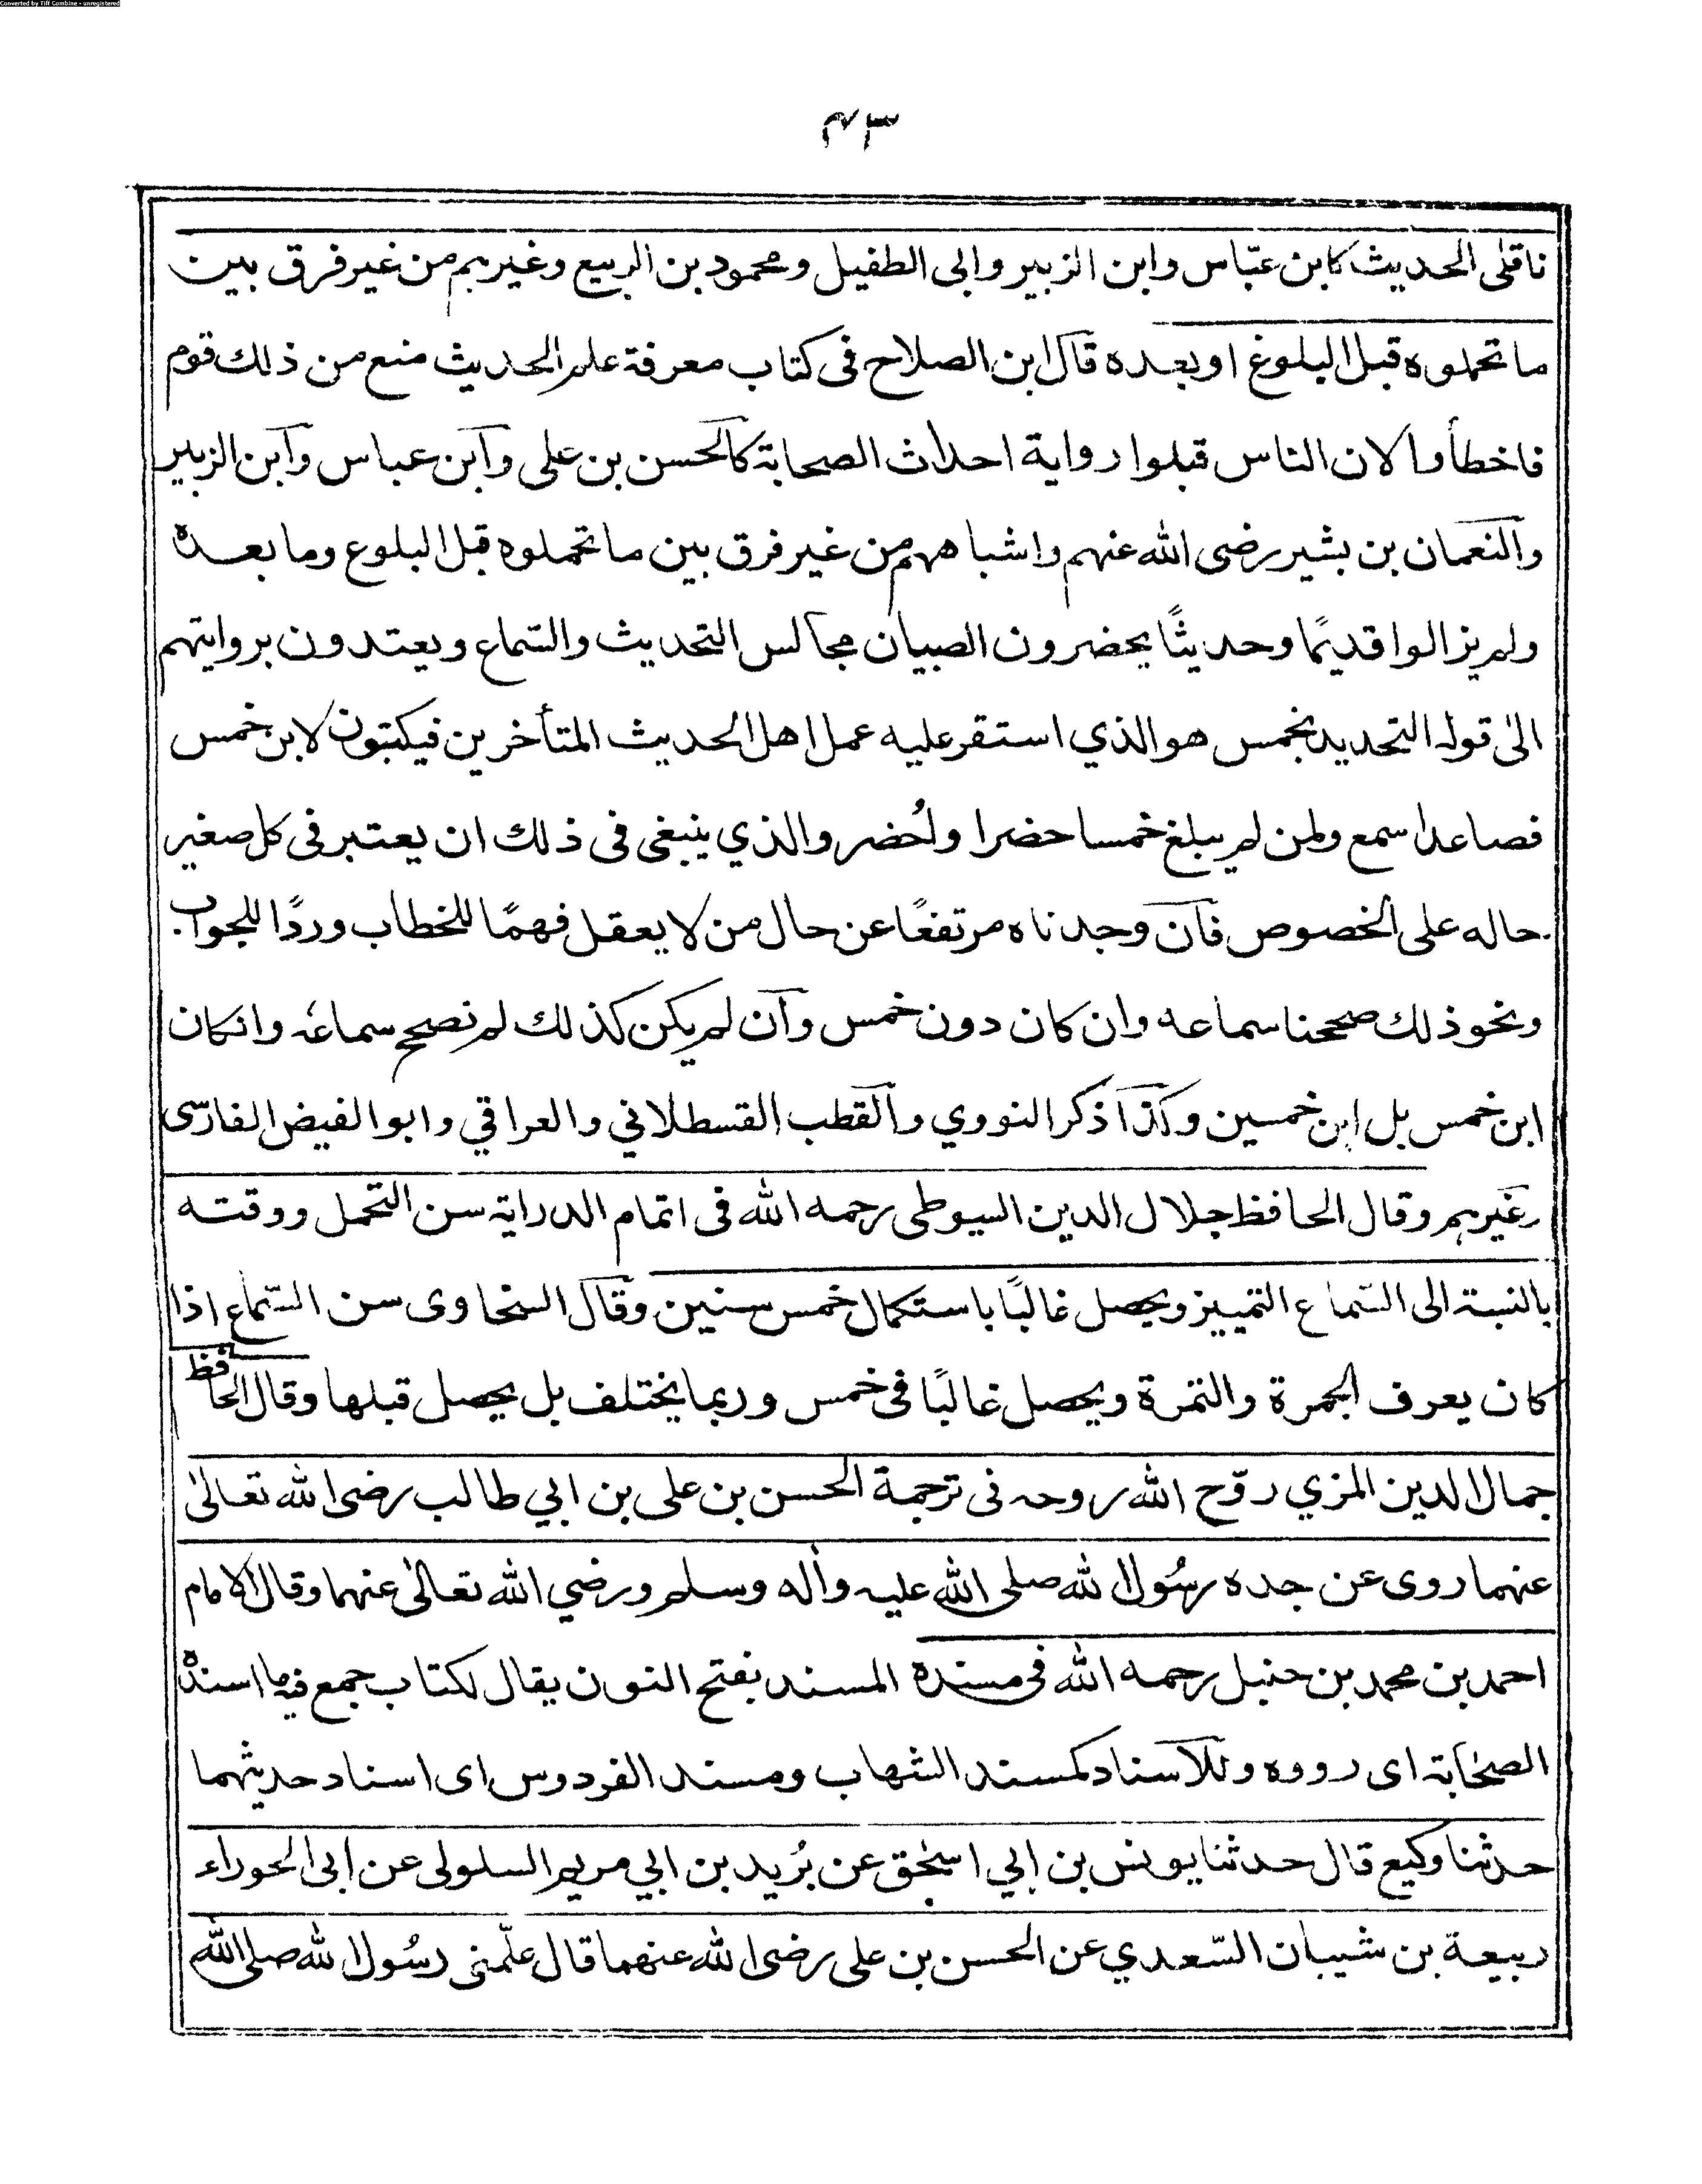 Converted by Tiff Combine - unregistered
٤٣
ناقلى الحديث كابن عبّاس وابن الزبير وابى الطفيل ومحمود بن الربيع وغيرهم من غير فرق بين
ما تحملوه قبل البلوغ او بعده قال ابن الصلاح فى كتاب معرفة علم الحديث منع من ذلك قوم
فاخطأوا لان الناس قبلوا رواية احداث الصحابة كالحسن بن على وابن عباس وابن الزبير
والنعمان بن بشير رضى الله عنهم واشباههم من غير فرق بين ما تحملوه قبل البلوغ وما بعده
ولم يزالوا قديمًا وحديثًا يحضرون الصبيان مجالس التحديث والسّماع ويعتدون بروايتهم
الىٰ قوله التحديد بخمس هو الذي استقر عليه عمل اهل الحديث المتأخرين فيكتبون لابن خمس
فصاعدا سمع ولمن لم يبلغ خمسا حضرا واُحضر والذي ينبغى فى ذلك ان يعتبر فى كل صغير
حاله على الخصوص فان وجدناه مرتفعًا عن حال من لا يعقل فهمًا للخطاب وردًا للجواب
ونحو ذلك صححنا سماعه وان كان دون خمس وان لم يكن كذلك لم نصحح سماعه وانكان
ابن خمس بل ابن خمسين وكذا ذكر النووي والقطب القسطلاني والعراقي وابو الفيض الفارسى
وغيرهم وقال الحافظ جلال الدين السيوطى رحمه الله فى اتمام الدراية سن التحمل ووقته
بالنسبة الى السّماع التمييز ويحصل غالبًا باستكمال خمس سنين وقال السخاوى سن السّماع اذا
كان يعرف الجمرة والتمرة ويحصل غالبًا فى خمس وربما يختلف بل يحصل قبلها وقال الحافظ
جمال الدين المزي روّح الله روحه فى ترجمة الحسن بن على بن ابي طالب رضى الله تعالىٰ
عنهما روى عن جده رسُول الله صلى الله عليه وأله وسلم ورضي الله تعالىٰ عنهما وقال الامام
احمد بن محمد بن حنبل رحمه الله فى مسنده المسند بفتح النون يقال لكتاب جمع فيه ما اسنده
الصحابة اى رووه وللاسناد كمسند الشهاب ومسند الفردوس اى اسناد حديثهما
حدثنا وكيع قال حدثنا يونس بن ابي اسحٰق عن بُريد بن ابي مريم السلولى عن ابى الحوراء
ربيعة بن شيبان السّعدي عن الحسن بن على رضى الله عنهما قال علّمنى رسُول الله صلى الله